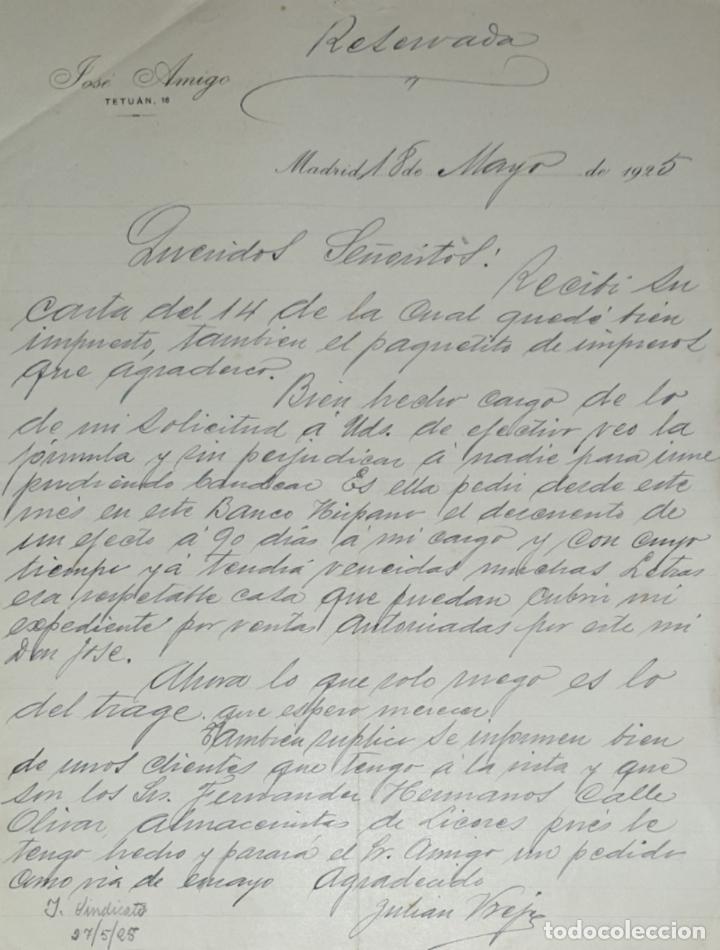 Reservada
José Amigo
TETUÁN, 16
Madrid, 18 de Mayo de 1925
Queridos Señoritos:
Recibi su
carta del 14 de la cual quedé bién
impuesto, tambien el paquetito de impresos
que agradezco.
Bien hecho cargo de lo
de mi solicitud á Uds. de efectivo veo la
fórmula y sin perjudicar á nadie para
pudiendo bandear Es ella pedir desde este
més en este Banco Hispano el descuento de
un efecto á 90 días a mi cargo y con cuyo
tiempo yá tendrá vencidas muchas Letras
esa respetable casa que puedan cubrir mi
expediente por ventas autorizadas por este mi
Don José.
Ahora lo que solo ruego es lo
del trage que espero merecer
También suplico se informen bien
de unos clientes que tengo á la vista y que
son los Srs. Fernandez Hermanos Calle
Olivar, Almacenistas de Licores pués le
tengo hecho y parará el Sr. Amigo un pedido
como via de ensayo Agradecido
Julian
J. Sindicato
27/5/25
todocoleccion
todocoleccion.net